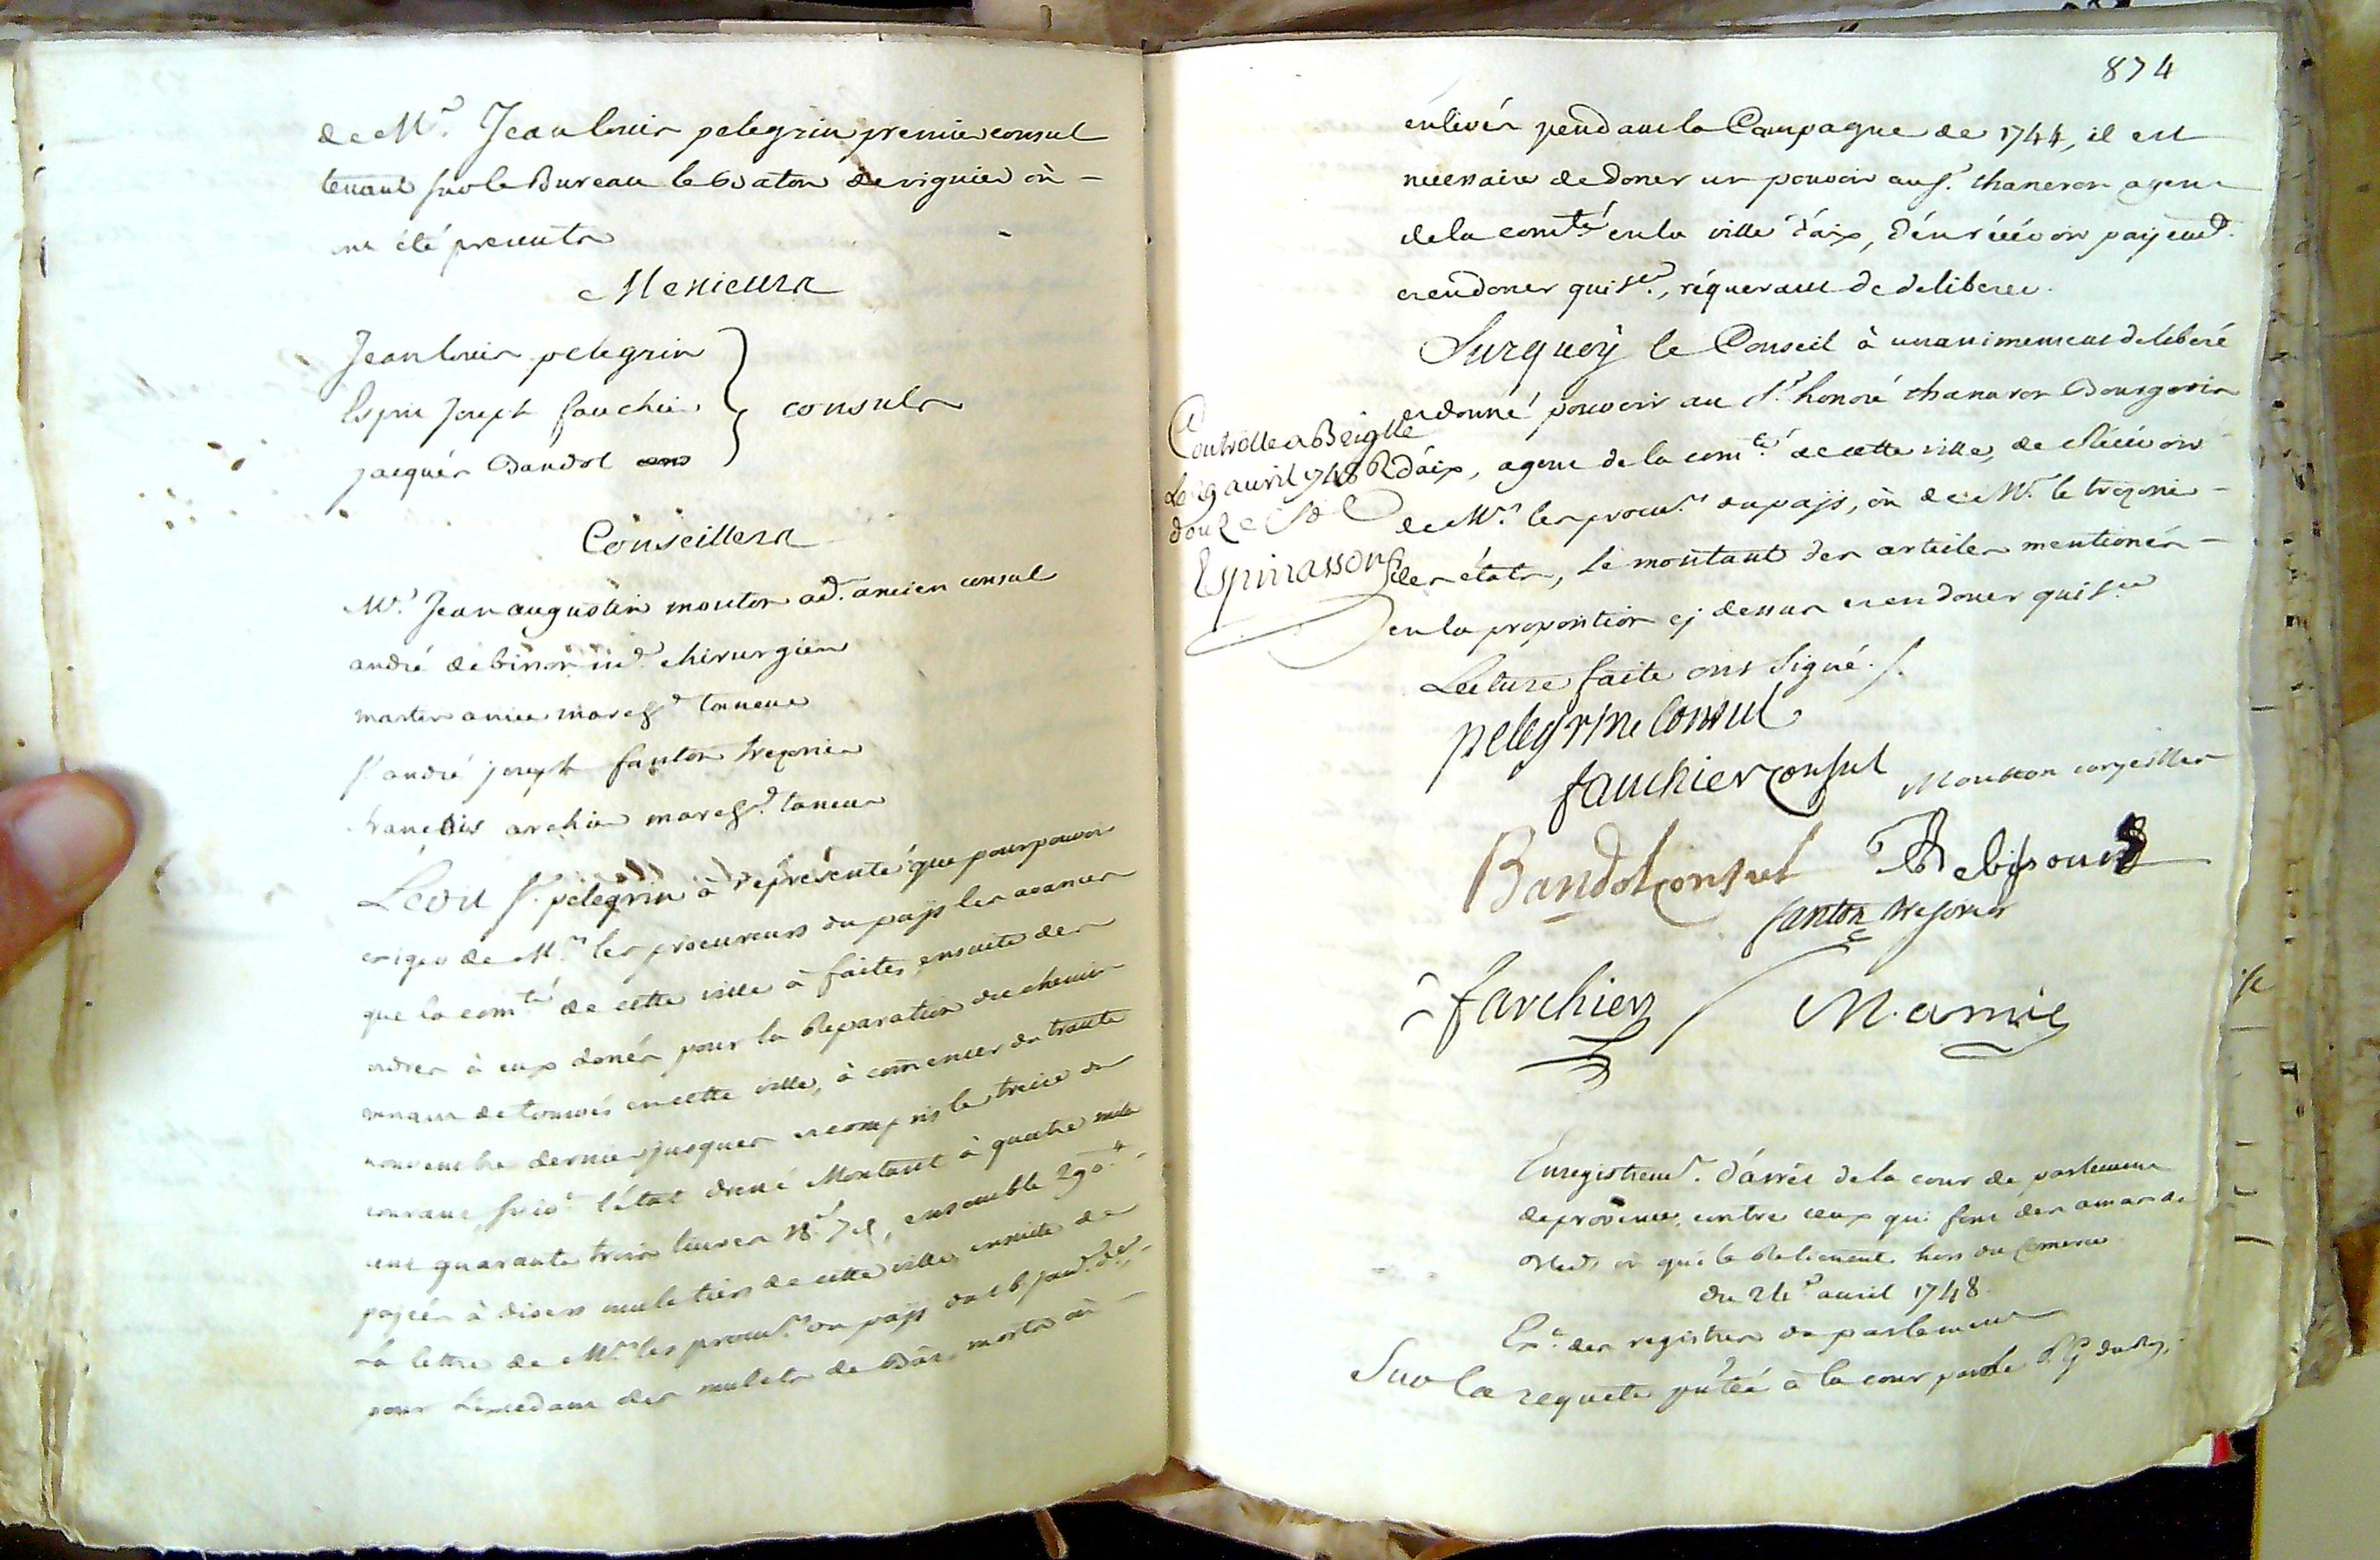 de Mr. Jean louis pelegrin premier consul
tenant sur le Bureau le Baton de viguier où
ont été presents
Messieurs
Jean louis pelegrin
Esprit Joseph fauchier
consuls
jacques Bandol
Conseillers
Mr. Jean augustin mouton ad. ancien consul
andré debisson md. chirurgien
martin amic march.d taneur
s.r andré joseph fanton trezorier
françois archier march.d taneur
Ledit s.r pelegrin à représenté que pour pouvoir
exiger de M.rs les procureurs du pays les avances
que la com.té de cette ville à faites ensuite des
ordres à eux donés pour la Reparation du chemin
venant de tourvés en cette ville, à comencer du trante
novembre dernier jusques et compris le treize du
courant, suiv.t l'état dressé Montant à quatre mille
cent quarante trois livres 18.s 7 d, ensemble 290 ₶
payées à divers muletiers de cette ville ensuite de
la lettre de M.rs les procu.rs du pays du 6 janv. d.er
pour Lexcedant des mulets de Bâts morts où
874
enlevés pendant la Campagne de 1744, il est
necessaire de doner un pouvoir au s.r thaneron agent
de la com.té en la ville d'aix, d'en récévoir payem.t
et en doner quit.ce, réquerant de deliberer.
Surquoy le Conseil à unanimement deliberé
et donné pouvoir au s.r honoré thaneron Bourgeois
d'aix, agent de la com.té de cette ville, de Récévoir
de M.rs les procu.rs du pays, où de Mr. le trezorier
des états, le montant des articles mentionés
en la proposition cy dessus et en doner quit.ce
Lecture faite ont signé.
Controlle a Brignolle
Le 29 avril 1748 R
douze sols
Espinasson
pellegrin Consul
fauchier consul
Moutton conseiller
Bandol consul
Debisson
fanton tresorier
f archier
M. amic
Enregistrem.t d'arrêt de la cour de parlement
de provence, contre ceux qui font des amas de
Bleds et qui le Retienent hors du Comerce
du 24.e avril 1748.
Ex.t des registres du parlement
Sur la requete p'ntée à la cour par le P.G du Roy,